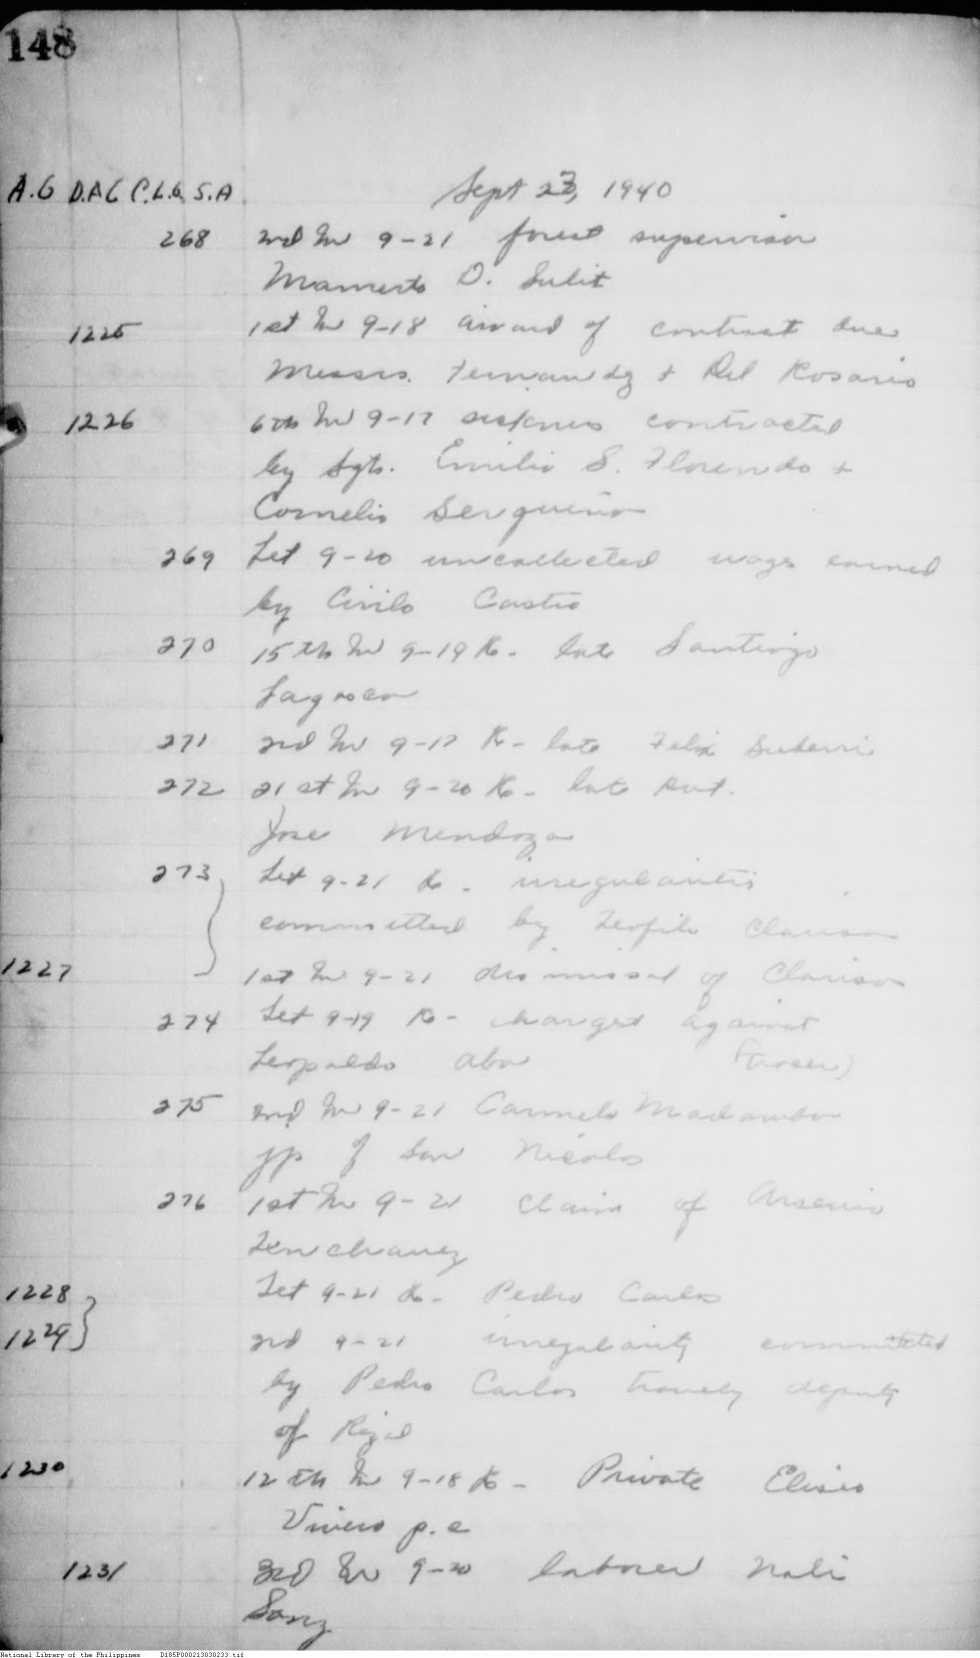 148
A.G D.A.C P.L.G. S.A. Sept 23, 1940
268 2nd In 9-21 forest supervisor
Mamerto D. Sulit
1225 1st In 9-18 award of contract due
Messrs. Fernandez & Del Rosario
1226 6th In 9-17 sickness contracted
by Sgts. Emilio S. Florendo &
Cornelio
269 Let 9-20 uncollected wage earned
by Cirilo Castro
270 15th In 9-19 Re- late Santiago
271 2nd In 9-17 Re- late Felix
272 21st In 9-20 Re- late Pvt.
Jose Mendoza
273 Let 9-21 Re- irregularities
committed by Teofilo
1227 1st In 9-21 dismissal of
274 Let 9-19 Re- charges against
Leopoldo
275 2nd In 9-21 Carmelo
jp of San Nicolas
276 1st In 9-21 claim of Arsenio
Tenchavez
1228 Let 9-21 Re- Pedro Carlos
1229 2nd 9-21 irregularity committed
by Pedro Carlos deputy
of Rizal
1230 12th In 9-18 Re- Private Eliseo
Vivero p.c
1231 3rd In 9-20 laborer
National Library of the Philippines D185P000213030233.tif